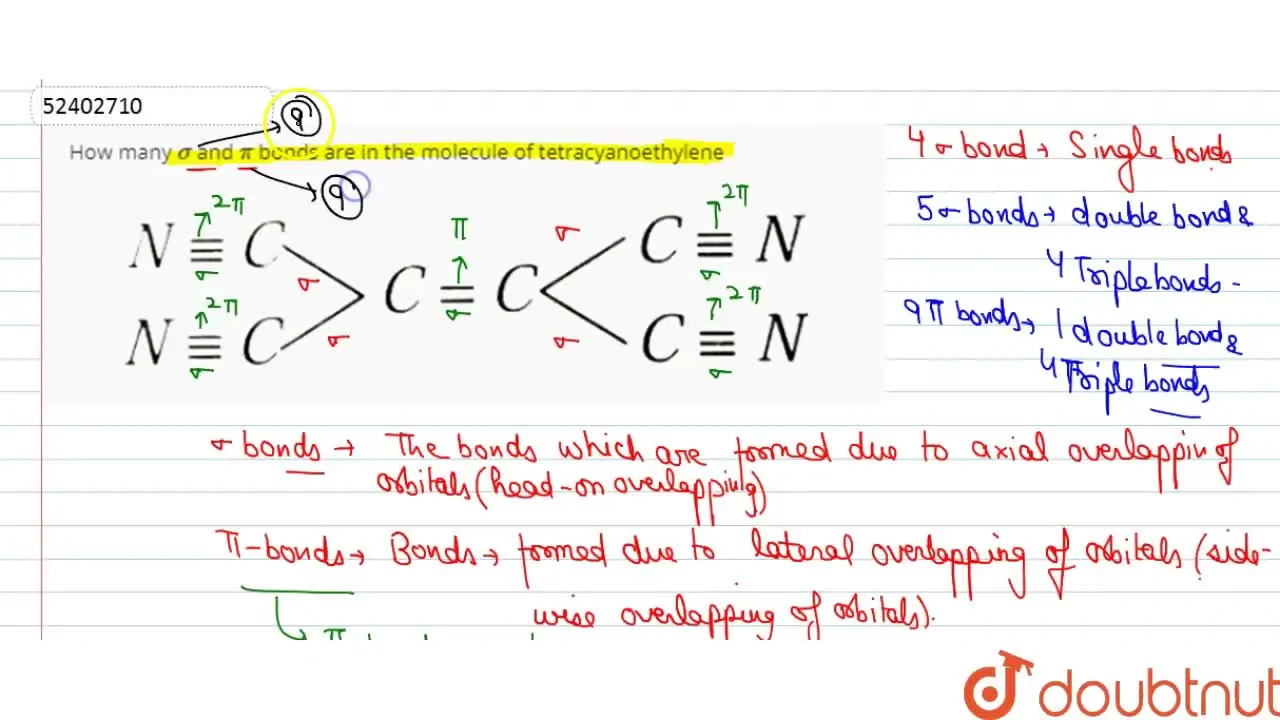 52402710
9
How many σ and π bonds are in the molecule of tetracyanoethylene
9
4 σ bond → Single bonds
5 σ bonds → double bond &
4 Triple bonds -
9 π bonds → 1 double bond &
4 Triple bonds
2π 2π
N ≡ C π σ C ≡ N
σ σ σ
2π C = C 2π
N ≡ C σ σ σ C ≡ N
σ σ
σ bonds → The bonds which are formed due to axial overlappin of
orbitals (head-on overlapping)
π-bonds → Bonds → formed due to lateral overlapping of orbitals (side-
wise overlapping of orbitals).
π
doubtnut